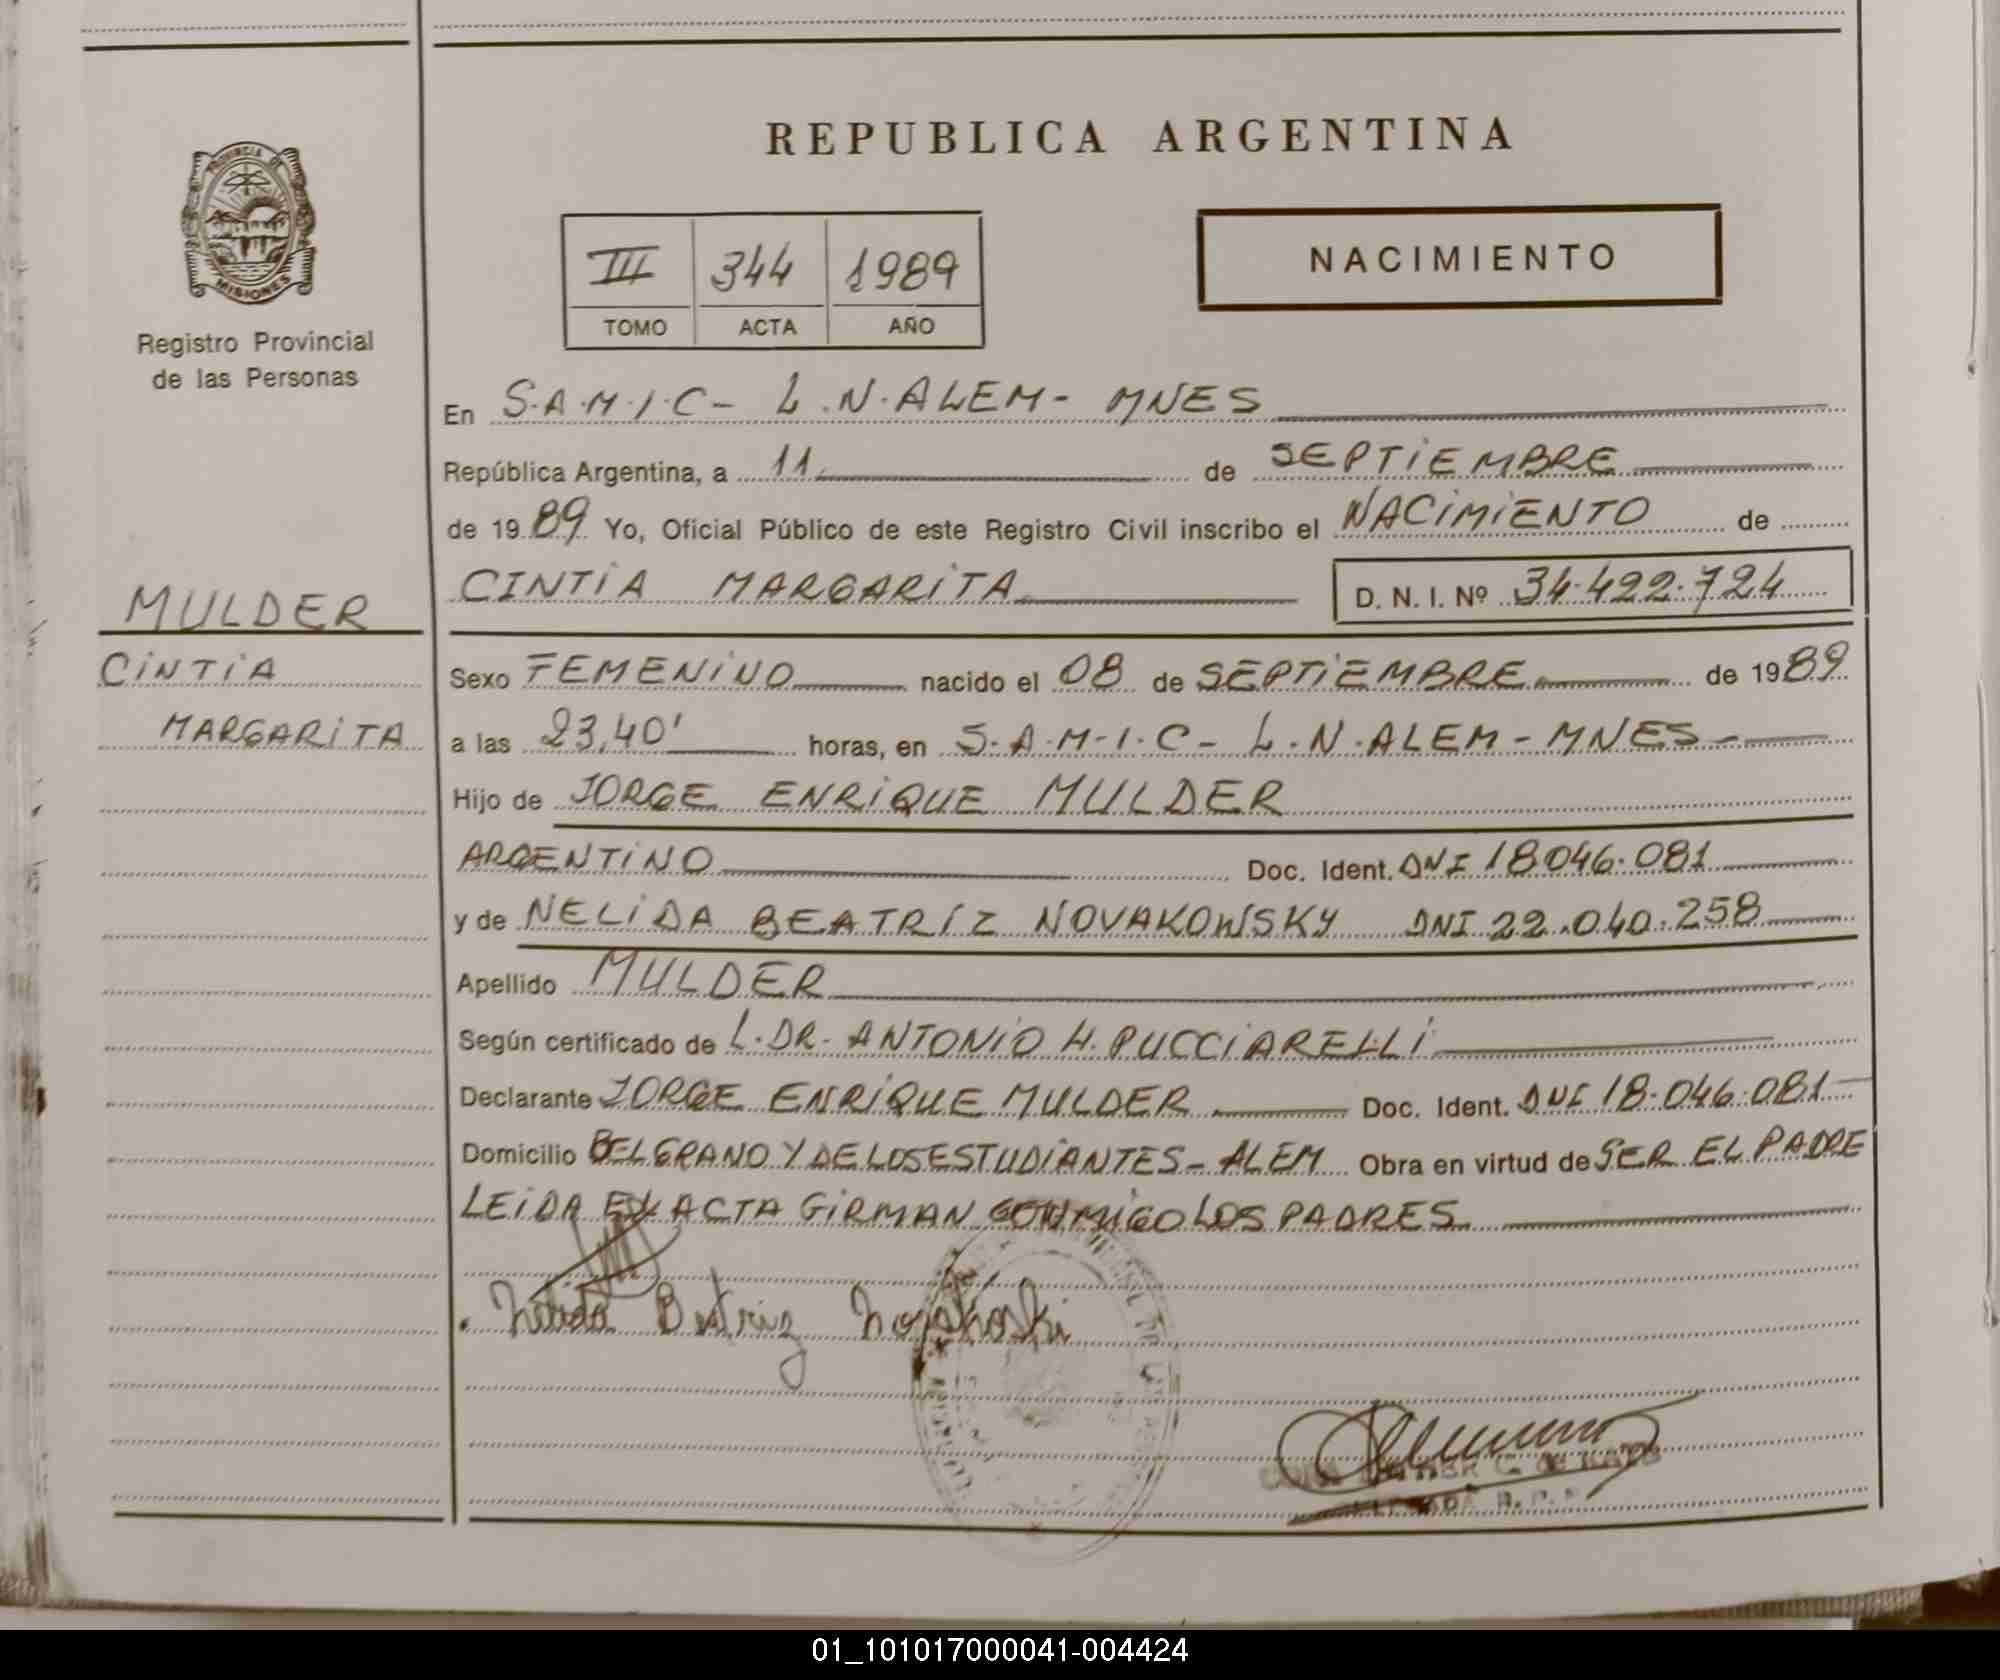 REPUBLICA ARGENTINA
PROVINCIA DE
MISIONES
Registro Provincial
de las Personas
III 344 1989
TOMO ACTA AÑO
NACIMIENTO
En S.A.M.I.C- L.N.ALEM- MNES
República Argentina, a 11 de SEPTIEMBRE
de 1989 Yo, Oficial Público de este Registro Civil inscribo el NACIMIENTO de
CINTIA MARGARITA D. N. I. Nº 34.422.724
MULDER
CINTIA
MARGARITA
Sexo FEMENINO nacido el 08 de SEPTIEMBRE de 1989
a las 23,40' horas, en S.A.M.I.C- L.N.ALEM-MNES-
Hijo de JORGE ENRIQUE MULDER
ARGENTINO Doc. Ident. DNI 18046.081
y de NELIDA BEATRIZ NOVAKOWSKY DNI 22.040.258
Apellido MULDER
Según certificado de L.DR. ANTONIO H. PUCCIARELLI
Declarante JORGE ENRIQUE MULDER Doc. Ident. DNI 18.046.081
Domicilio BELGRANO Y DE LOS ESTUDIANTES-ALEM Obra en virtud de SER EL PADRE
LEIDA EL ACTA GIRMAN CONMIGO LOS PADRES
Nelida Beatriz
01_101017000041-004424